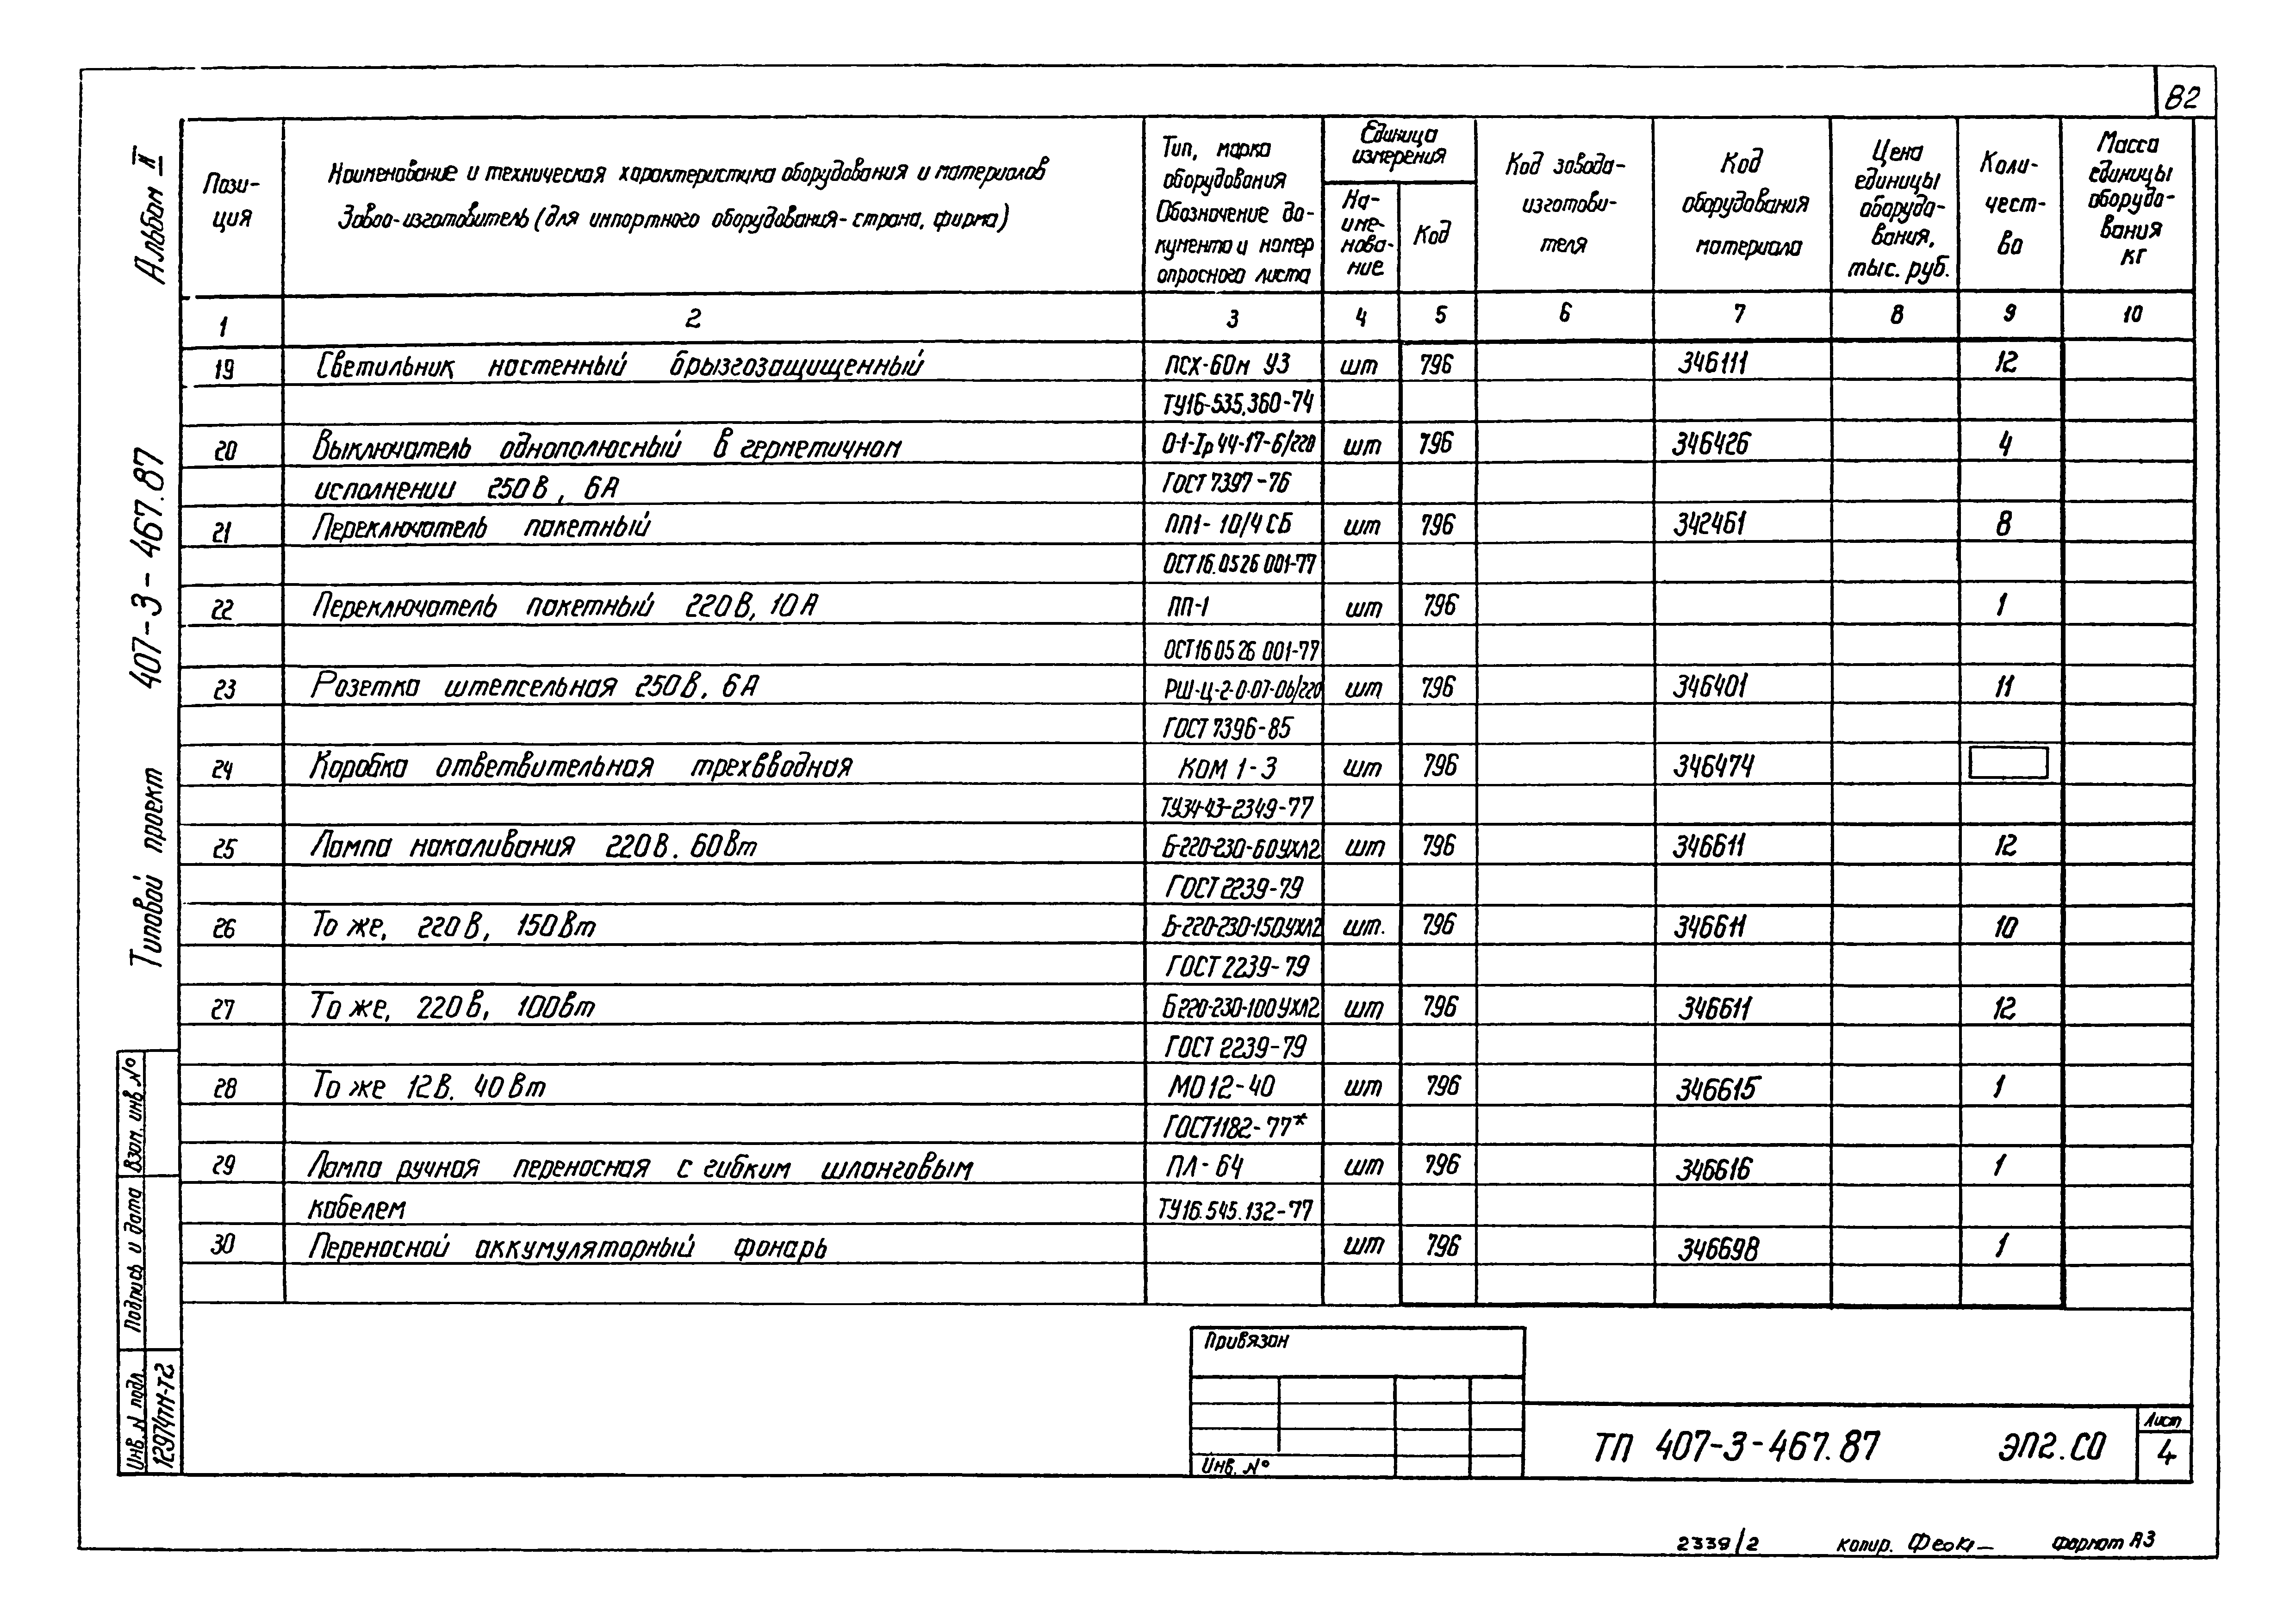 82
Альбом II
407-3-467.87
Типовой проект
Пози-
ция
Наименование и техническая характеристика оборудования и материалов
Завод-изготовитель (для импортного оборудования - страна, фирма)
Тип, марка
оборудования
Обозначение до-
кумента и номер
опросного листа
Единица
измерения
На-
име-
нова-
ние
Код
Код завода-
изготови-
теля
Код
оборудования
материала
Цена
единицы
оборудо-
вания,
тыс. руб.
Коли-
чест-
во
Масса
единицы
оборудо-
вания
кг
1 2 3 4 5 6 7 8 9 10
19 Светильник настенный брызгозащищенный ПСХ-60м У3 шт 796 346111 12
ТУ16-535.360-74
20 Выключатель однополюсный в герметичном О-1-Iр44-17-6/220 шт 796 346426 4
исполнении 250В, 6А ГОСТ 7397-76
21 Переключатель пакетный ПП1-10/4 СБ шт 796 342461 8
ОСТ16.0526 001-77
22 Переключатель пакетный 220В, 10А ПП-1 шт 796 1
ОСТ16 0526 001-77
23 Розетка штепсельная 250В, 6А РШ-Ц-2-0-07-06/220 шт 796 346401 11
ГОСТ 7396-85
24 Коробка ответвительная трехвводная КОМ 1-3 шт 796 346474
ТУ34-43-2349-77
25 Лампа накаливания 220В. 60Вт Б-220-230-60УХЛ2 шт 796 346611 12
ГОСТ 2239-79
26 То же, 220В, 150Вт Б-220-230-150УХЛ2 шт. 796 346611 10
ГОСТ 2239-79
27 То же, 220В, 100Вт Б220-230-100УХЛ2 шт 796 346611 12
ГОСТ 2239-79
28 То же 12В. 40Вт МО12-40 шт 796 346615 1
ГОСТ1182-77*
29 Лампа ручная переносная с гибким шланговым ПЛ-64 шт 796 346616 1
кабелем ТУ16.545.132-77
30 Переносной аккумуляторный фонарь шт 796 346698 1
Взам. инв. №
Подпись и дата
Инв. N подл.
12974тм-т2
Привязан
Инв. №
ТП 407-3-467.87 ЭП2.СО
Лист
4
2339/2 копир. формат А3